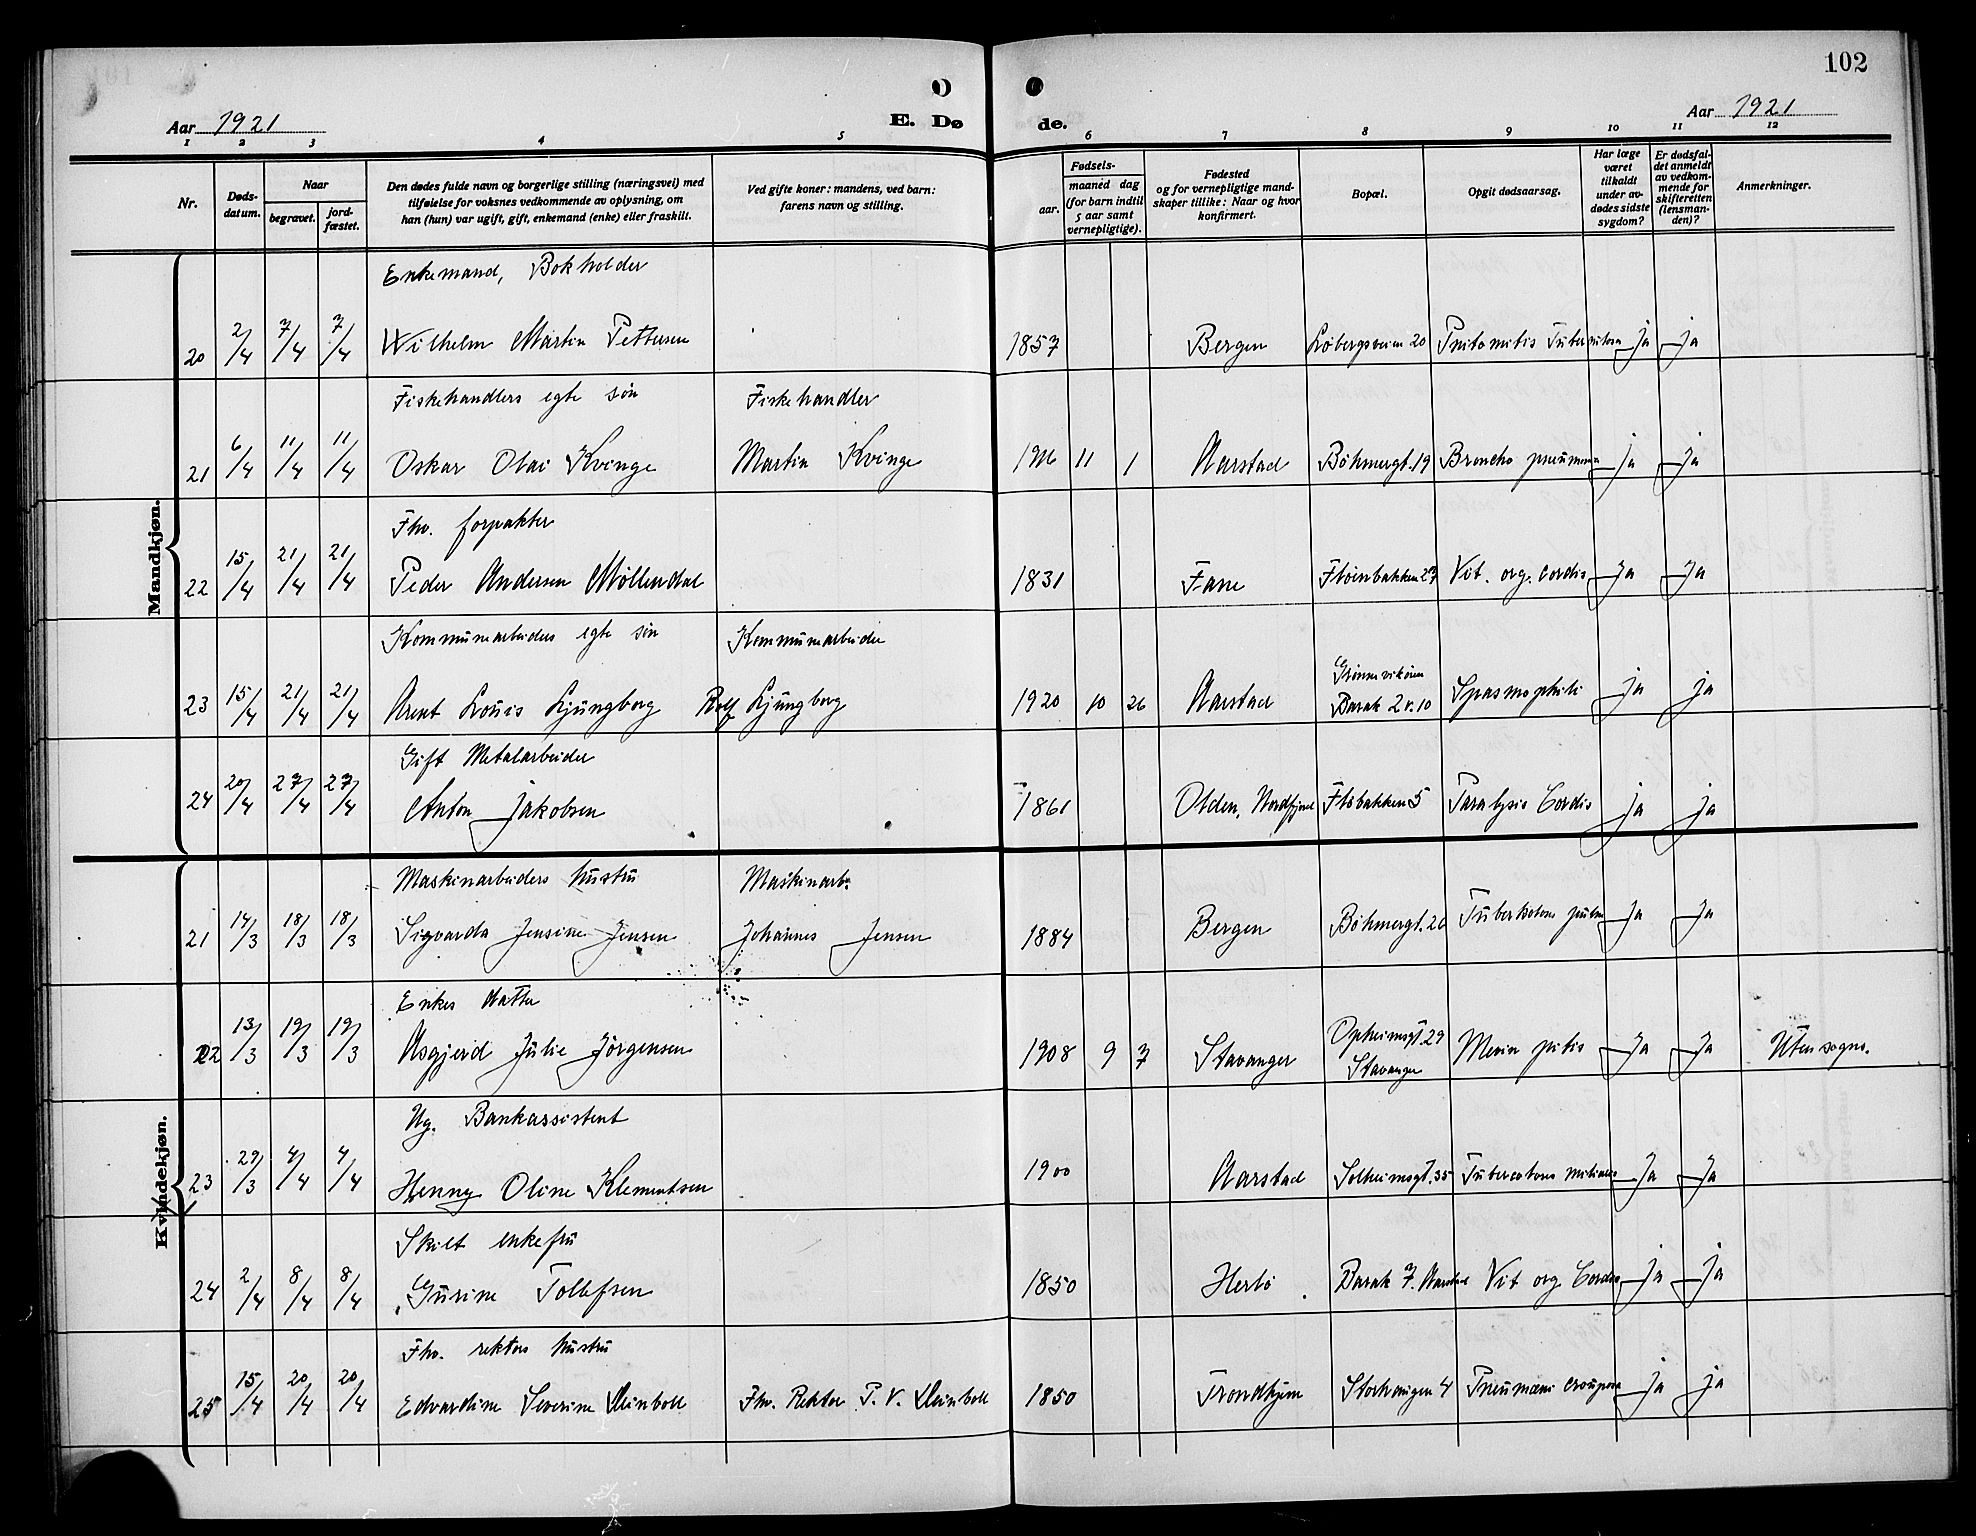 102
Aar 1921
E. Dø
de.
Aar 1921
1 2 3 4 5 6 7 8 9 10 11 12
Nr.
Døds-
datum.
Naar
begravet.
jord-
fæstet.
Den dødes fulde navn og borgerlige stilling (næringsvei) med
tilføielse for voksnes vedkommende av oplysning, om
han (hun) var ugift, gift, enkemand (enke) eller fraskilt.
Ved gifte koner: mandens, ved barn:
farens navn og stilling.
Fødsels-
aar.
maaned dag
(for barn indtil
5 aar samt
vernepligtige).
Fødested
og for vernepligtige mand-
skaper tillike: Naar og hvor
konfirmert.
Bopæl.
Opgit dødsaarsag.
Har læge
været
tilkaldt
under av-
dødes sidste
sygdom?
Er dødsfal-
det anmeldt
av vedkom-
mende for
skifteretten
(lensman-
den)?
Anmerkninger.
Mandkjøn.
Enkemand, Bokholder
20 2/4 7/4 7/4 Wilhelm Martin Pettersen 1857 Bergen Løbergsveien 20 ja ja
Fiskehandlers egte søn Fiskehandler
21 6/4 11/4 11/4 Oskar Olai Kvinge Martin Kvinge 11 1 Aarstad Böhmergt. 19 Broncho pneumoni ja ja
Fhv. forpakter
22 15/4 21/4 21/4 Peder Andersen Møllendal 1831 Fane Fløenbakken 27 Vit. org. cordis Ja Ja
Kommunearbeiders egte søn Kommunearbeider
23 15/4 21/4 21/4 Arent Louis Ljungborg Rolf Ljungborg 1920 10 26 Aarstad Barak 2 v. 10 Spasmophili ja ja
Gift Metalarbeider
24 20/4 27/4 27/4 Anton Jakobsen 1861 Olden, Nordfjord Fløbakken 5 Paralysis Cordis ja ja
Kvindekjøn.
Maskinarbeiders hustru Maskinarb.
21 14/3 18/3 18/3 Sigvarda Jensine Jensen Johannes Jensen 1884 Bergen Böhmergt. 20 Ja Ja
Enkes datter
22 13/3 19/3 19/3 Asgjerd Julie Jørgensen 1908 9 7 Stavanger Opheimsgt. 29 Stavanger Ja Ja Utensogns.
Ug. Bankassistent
23 29/3 4/4 4/4 Henny Oline Klementsen 1900 Aarstad Solheimsgt. 35 Ja Ja
Skilt enkefru
24 2/4 8/4 8/4 Gurine Tollefsen 1850 Herlö Barak 7. Aarstad Vit org Cordis ja ja
Fhv. rektors hustru
25 15/4 20/4 20/4 Edvardine Severine Deinboll Fhv. Rektor P. V. Deinboll 1850 Trondhjem Storhaugen 4 Pneumoni crouposa ja ja